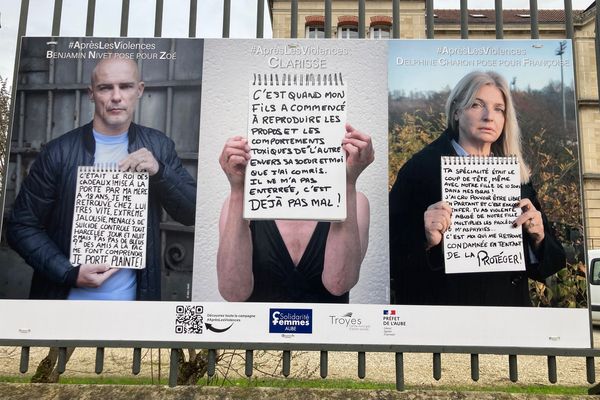 #AprèsLesViolences
Benjamin Nivet pose pour Zoé
C'ÉTAIT LE ROI DES
CADEAUX. MISE À LA
PORTE PAR MA MÈRE
À 18 ANS, JE ME
RETROUVE CHEZ LUI
TRÈS VITE. EXTRÊME
JALOUSIE, MENACES DE
SUICIDE CONTRÔLE TOUT
HARCELÉE JOUR ET NUIT
MAIS T'AS PAS DE BLEUS
DES AMIS À LA FAC
ME FONT COMPRENDRE
JE PORTE PLAINTE!
#AprèsLesViolences
Clarisse
C'EST QUAND MON
FILS A COMMENCÉ
À REPRODUIRE LES
PROPOS ET LES
COMPORTEMENTS
TOXIQUES DE L'AUTRE
ENVERS SA SOEUR ET MOI
QUE J'AI COMPRIS.
IL NE M'A PAS
ENTERRÉE, C'EST
DÉJÀ PAS MAL!
#AprèsLesViolences
Delphine Charon pose pour Françoise
TA SPÉCIALITÉ ÉTAIT LE
COUP DE TÊTE, MÊME
AVEC NOTRE FILLE DE 10 JOURS
DANS MES BRAS!
J'AI CRU POUVOIR ÊTRE LIBRE
EN PARTANT ET C'EST ENCORE
L'ENFER. TU AS VIOLENTÉ
ABUSÉ DE NOTRE FILLE,
MULTIPLIÉS LES PROCÉDURES
M'ASPHYXIES..
C'EST MOI QUI ME RETROUVE
CONDAMNÉE EN TENTANT
DE LA PROTÉGER!
Découvrez toute la campagne
#AprèsLesViolences
Solidarité
Femmes
AUBE
Troyes
PRÉFET
DE L'AUBE